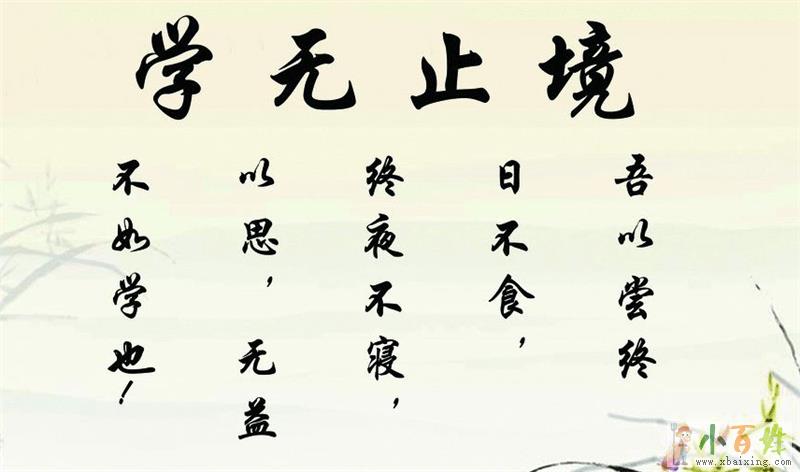 学无止境
吾以尝终
日不食，
终夜不寝，
以思，无益
不如学也！
小百姓
www.xbaixing.com